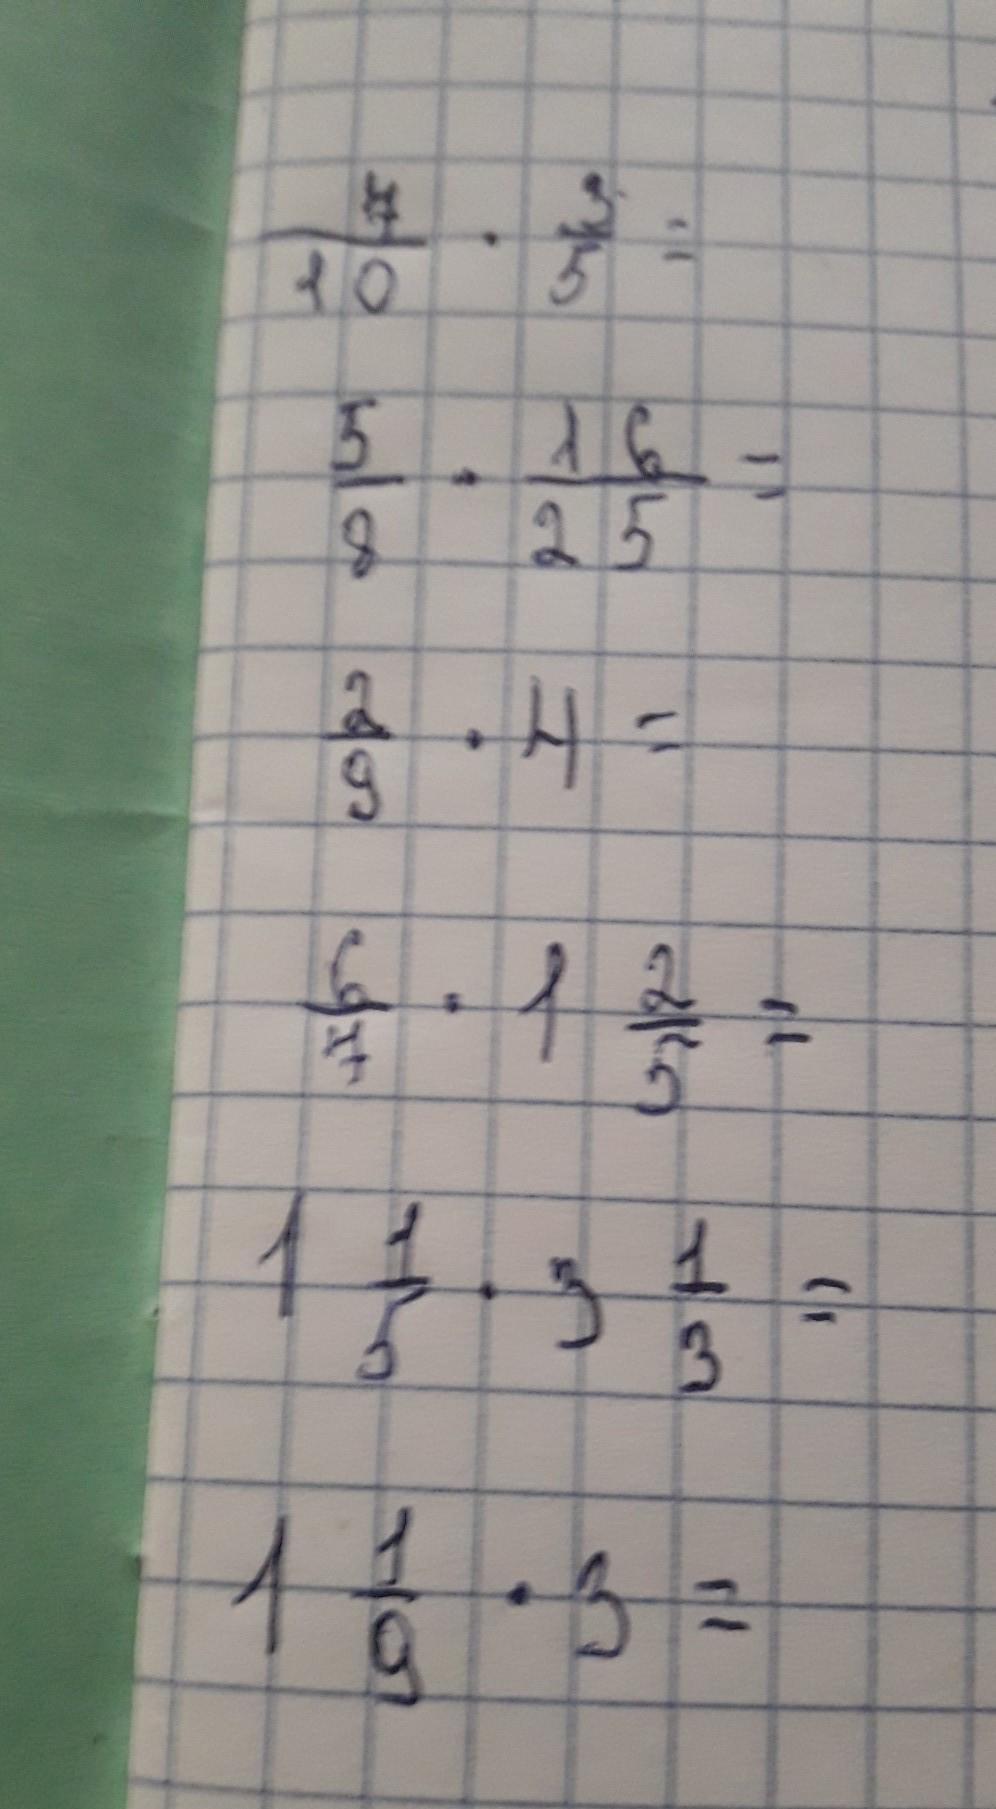 7/10 · 3/5 =
5/8 · 16/25 =
2/9 · 4 =
6/7 · 1 2/3 =
1 1/5 · 3 1/3 =
1 1/9 · 3 =